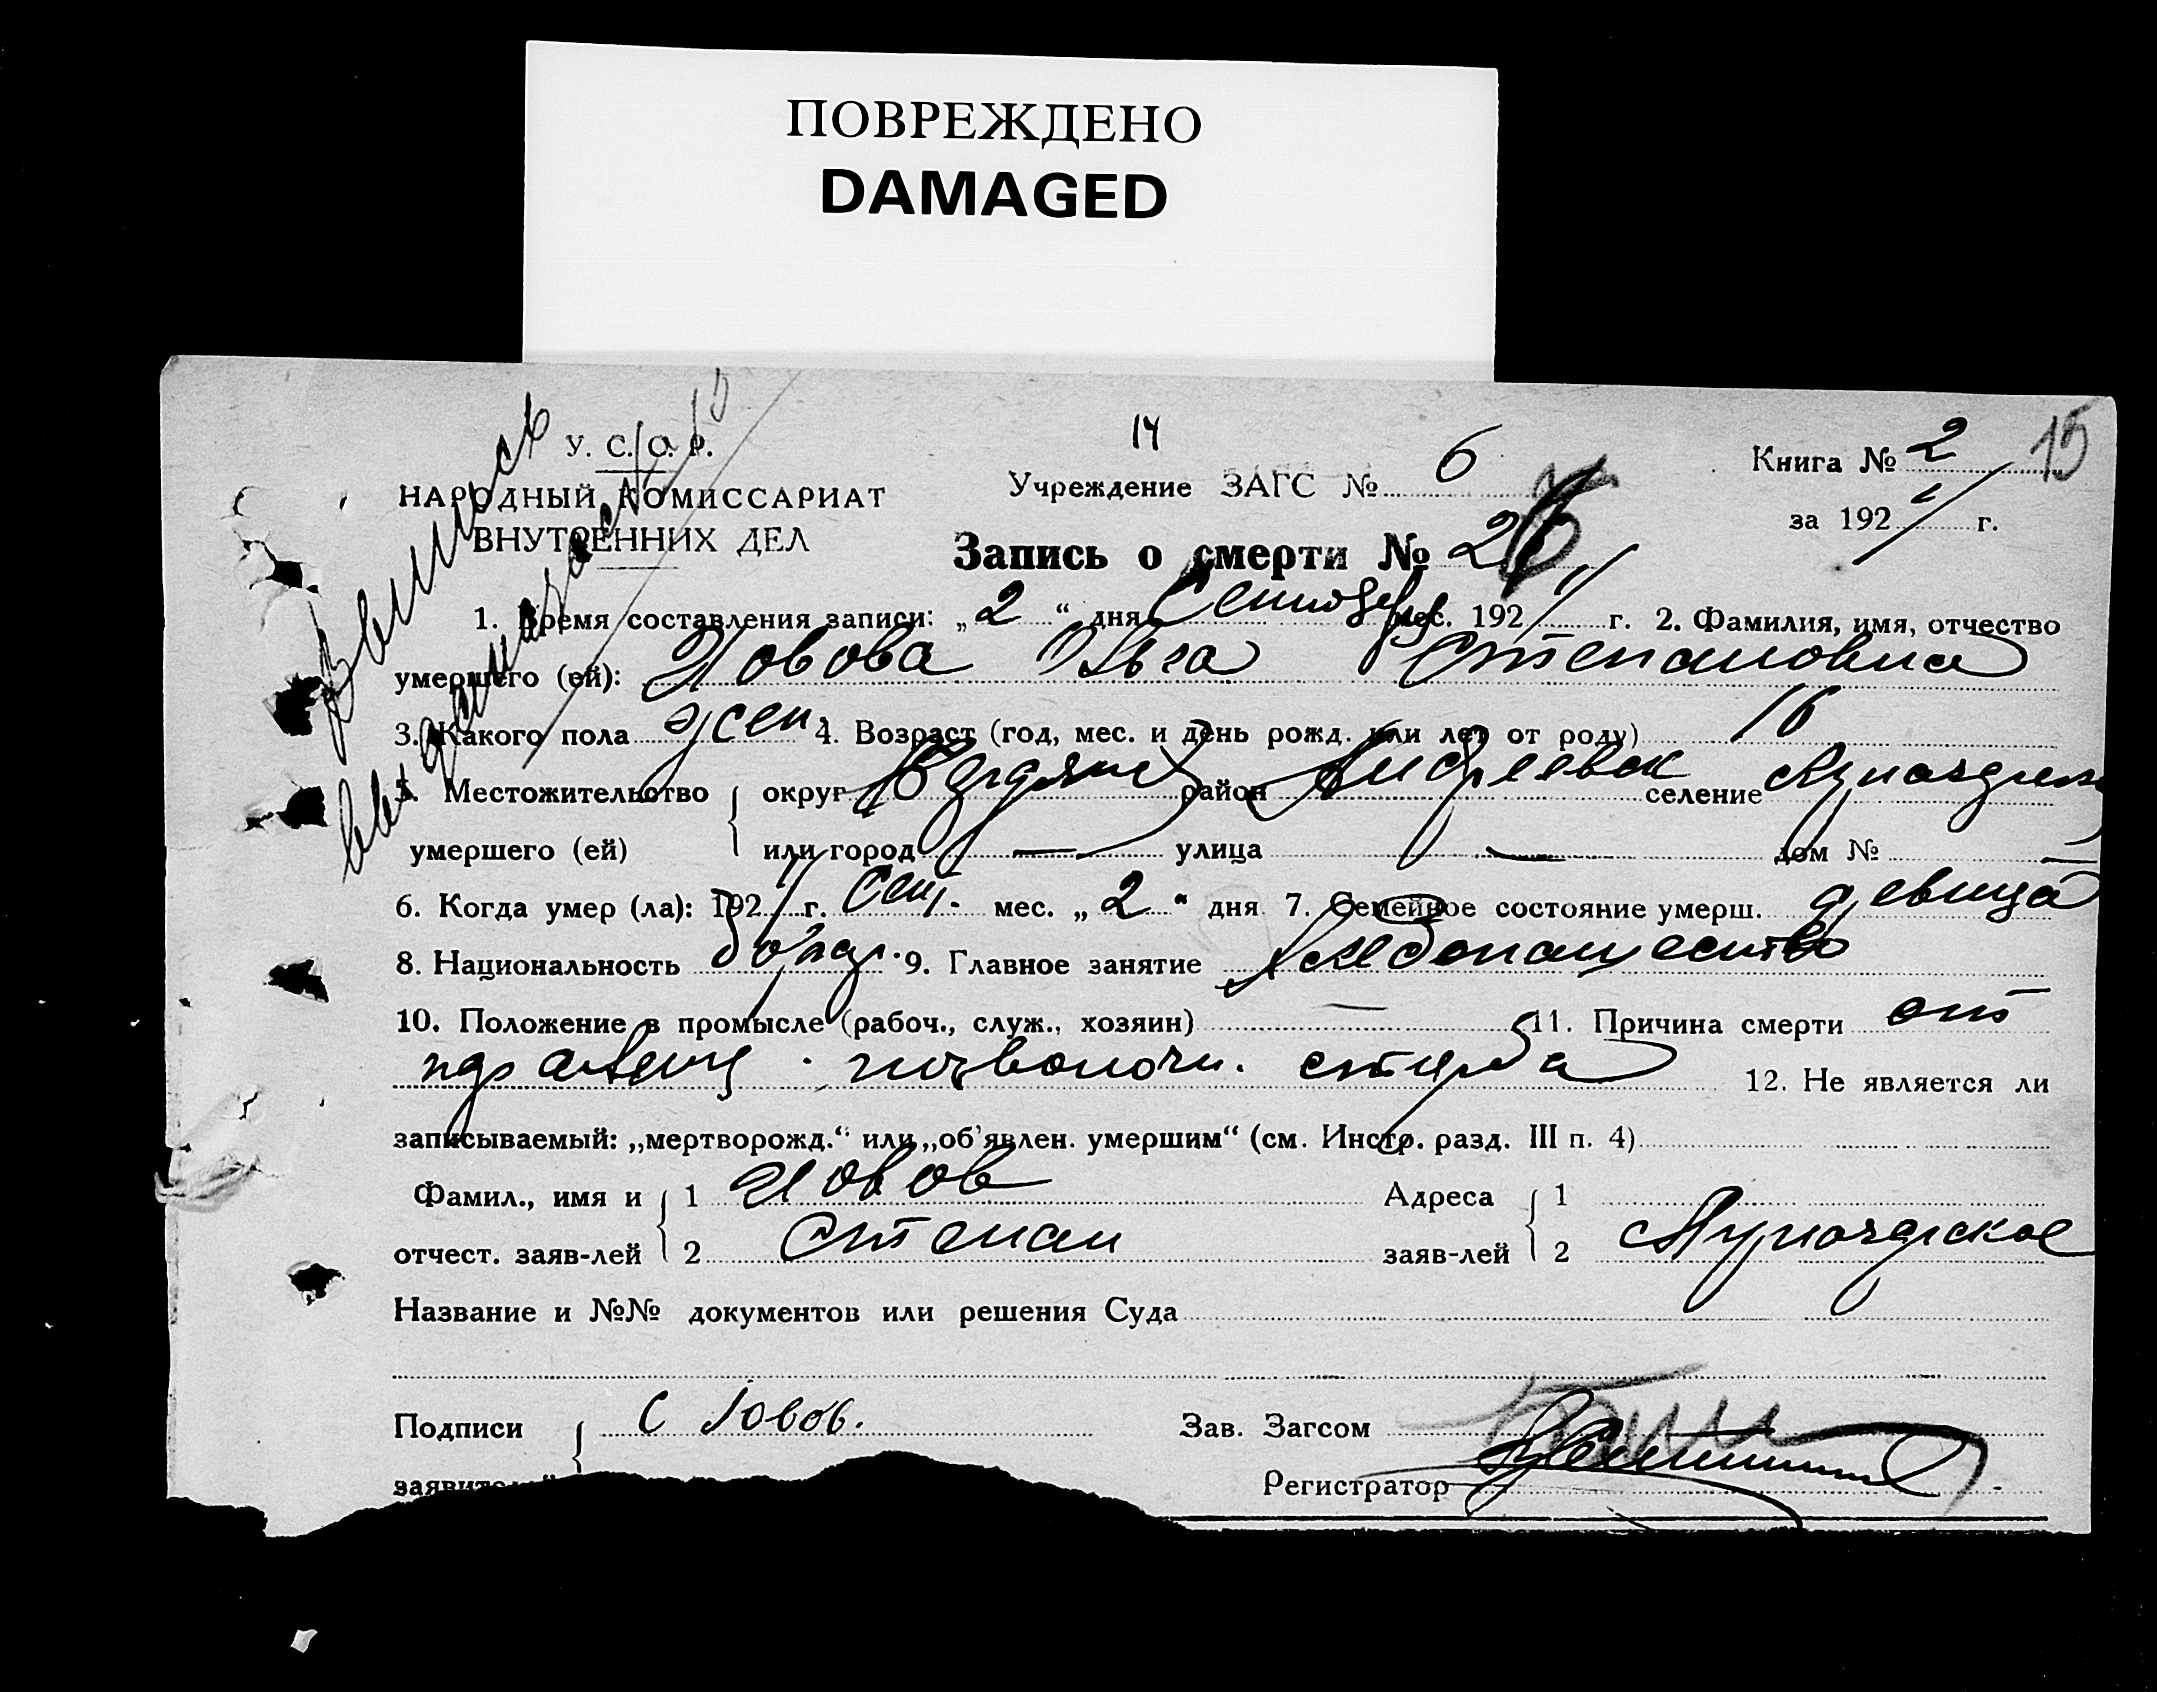 ПОВРЕЖДЕНО
DAMAGED
14
15
У. С. С. Р.
НАРОДНЫЙ КОМИССАРИАТ
ВНУТРЕННИХ ДЕЛ
Учреждение ЗАГС № 6
Книга № 2
за 192 г.
Запись о смерти №
1. Время составления записи: „2“ дня мес. 192 г. 2. Фамилия, имя, отчество
умершего (ей): Иовова Ольга Степановна
3. Какого пола жен. 4. Возраст (год, мес. и день рожд. или лет от роду) 16
5. Местожительство округ район селение
умершего (ей) или город — улица — дом № —
6. Когда умер (ла): 192 г. Сент. мес. „2“ дня 7. Семейное состояние умерш. девица
8. Национальность болгар. 9. Главное занятие хлебопашество
10. Положение в промысле (рабоч., служ., хозяин) — 11. Причина смерти от
позвоночн. столба 12. Не является ли
записываемый: „мертворожд.“ или „об'явлен. умершим“ (см. Инстр. разд. III п. 4)
Фамил., имя и 1 Иовов Адреса 1
отчест. заяв-лей 2 Степан заяв-лей 2
Название и №№ документов или решения Суда
Подписи С Іовов. Зав. Загсом
заявителей Регистратор